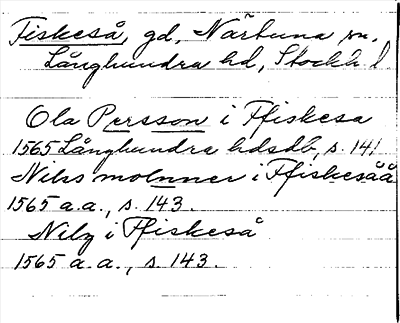 Fiskeså, gd, Närtuna sn,
Långhundra hd, Stockh. l
Ola Persson i Ffiskesa
1565 Långhundra hdsdb, s. 141
Nilss molnner i Ffiskesåå
1565 a.a., s. 143.
Nilz i Ffiskeså
1565 a.a., s. 143.